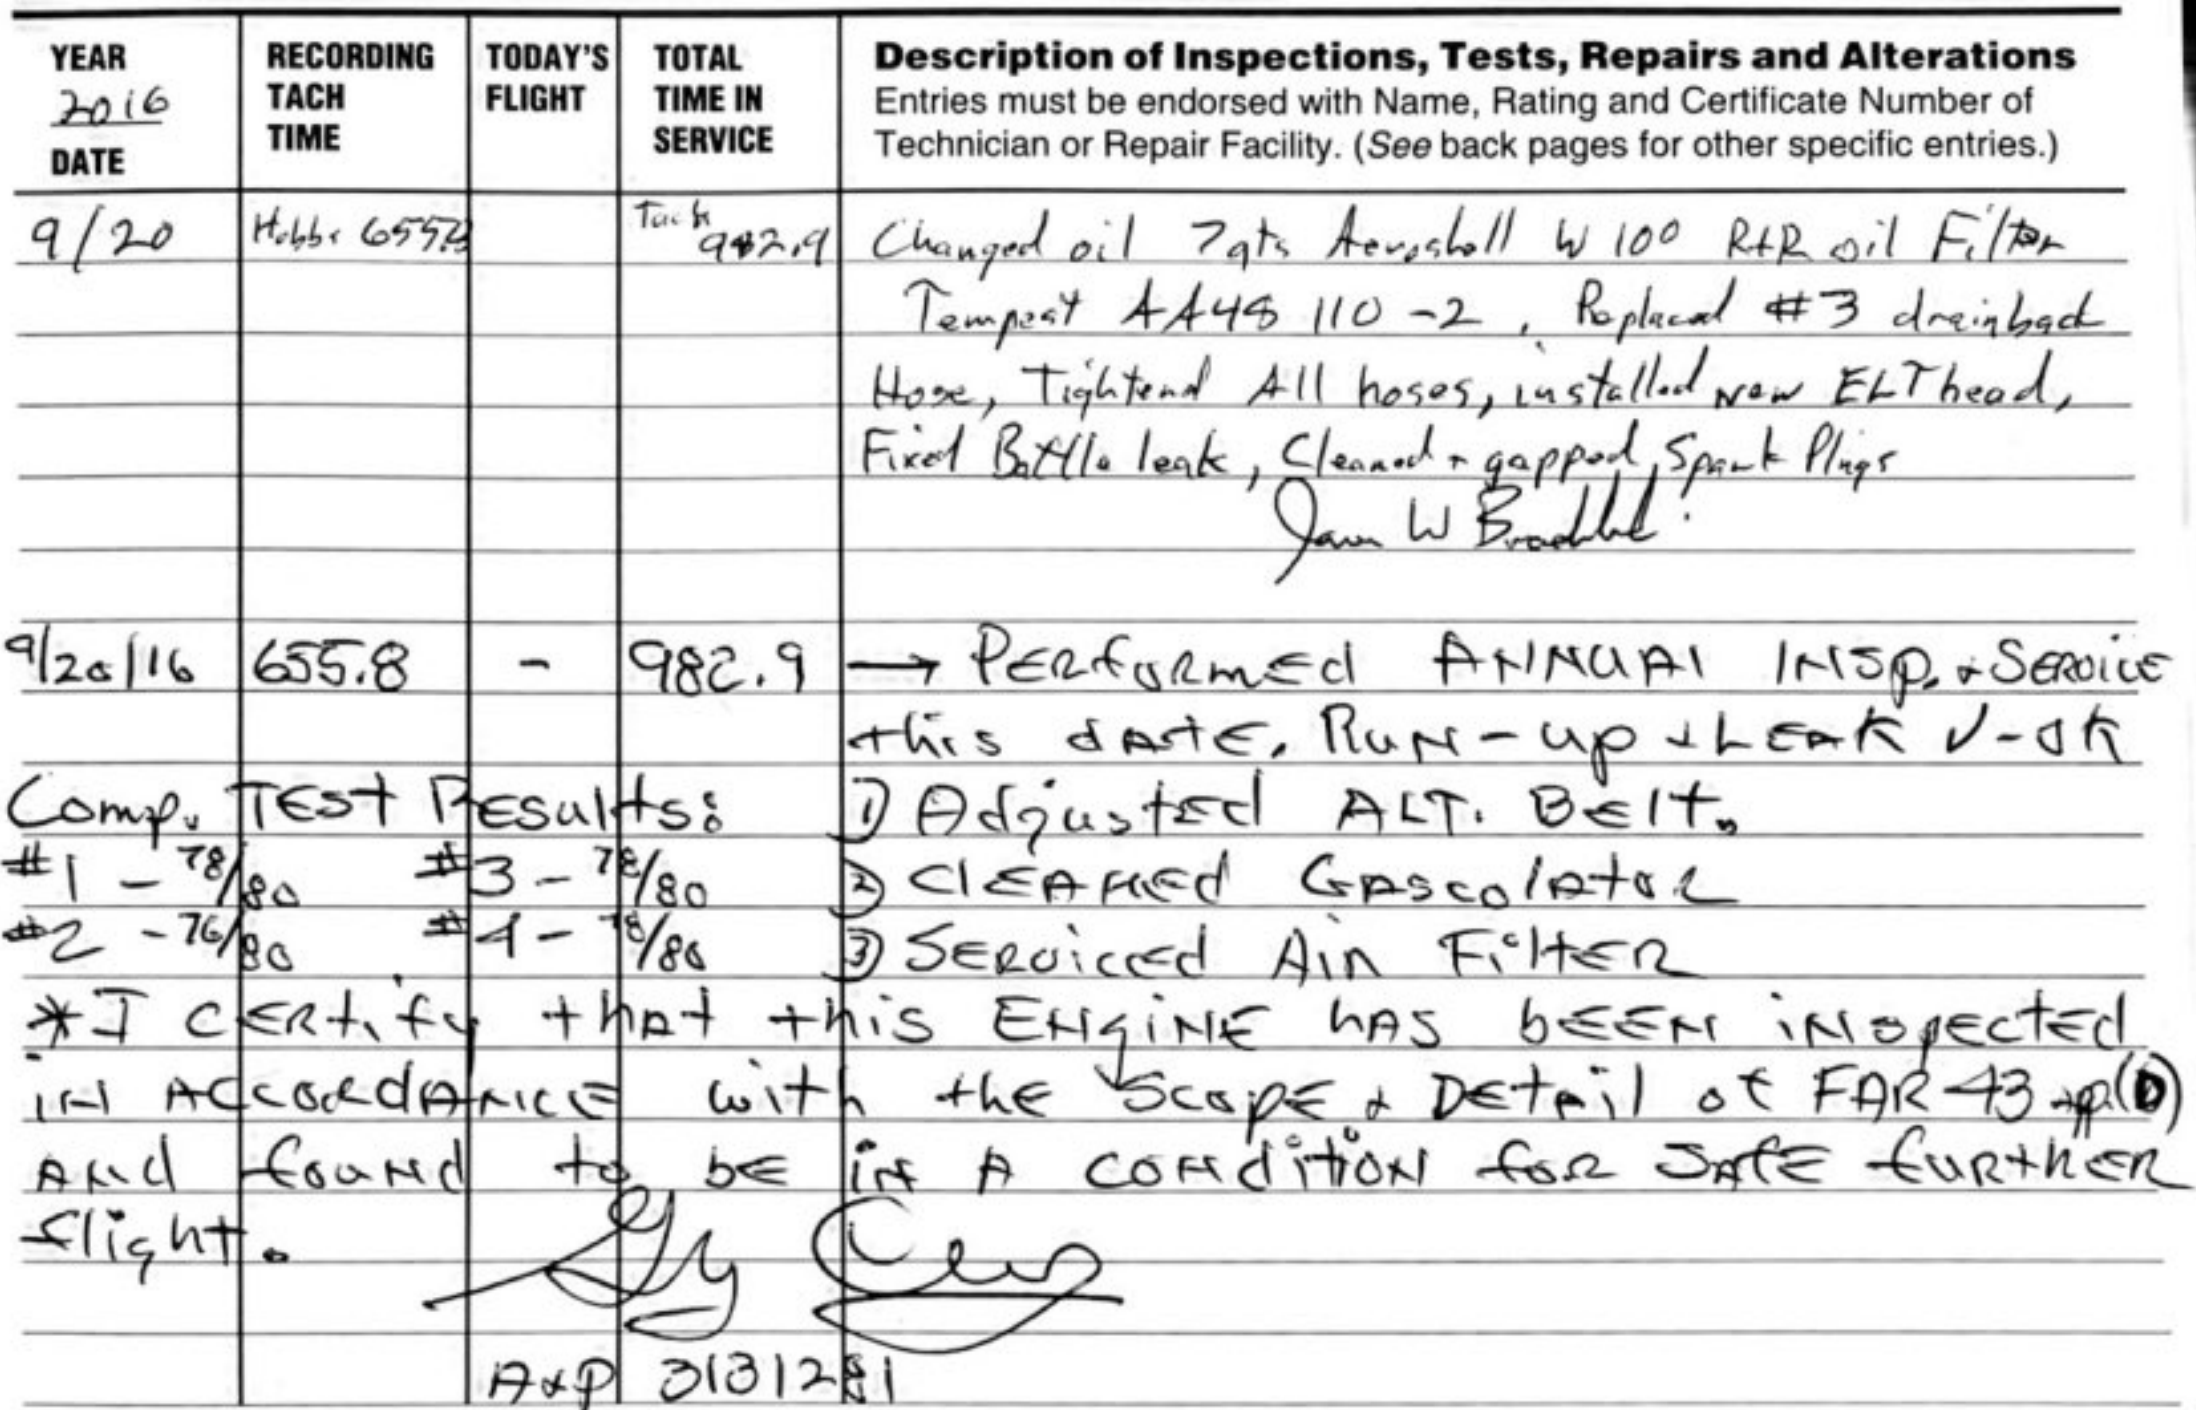 YEAR 2016 DATE
RECORDING TACH TIME
TODAY'S FLIGHT
TOTAL TIME IN SERVICE
Description of Inspections, Tests, Repairs and Alterations
Entries must be endorsed with Name, Rating and Certificate Number of
Technician or Repair Facility. (See back pages for other specific entries.)
9/20 Hobbs 655.8 Tach 982.9 Changed oil 7qts Aeroshell W 100 R+R oil Filter
Tempest AA48 110-2, Replaced #3 drainback
Hose, Tightend All hoses, installed new ELT head,
Fixed Baffle leak, Cleaned + gapped, Spark Plugs
W
9/20/16 655.8 - 982.9 → PERformEd ANNUAl INSp. & SERVICE
this dAtE. RuN-up & LEAK √-OK
Comp. TEst REsults: 1) Adjusted ALT. BElt.
#1 - 78/80 #3 - 78/80 2) ClEANEd GAscolAtoR
#2 - 76/80 #4 - 78/80 3) SERviced AiR FiltER
*I cERtify thAt this ENgiNE hAS bEEN iNspEctEd
iN AccordANcE with thE ScopE & DEtAil of FAR 43 app.(D)
ANd fouNd to bE iN A coNditioN foR SAfE fuRthER
flight.
A&P 3131281